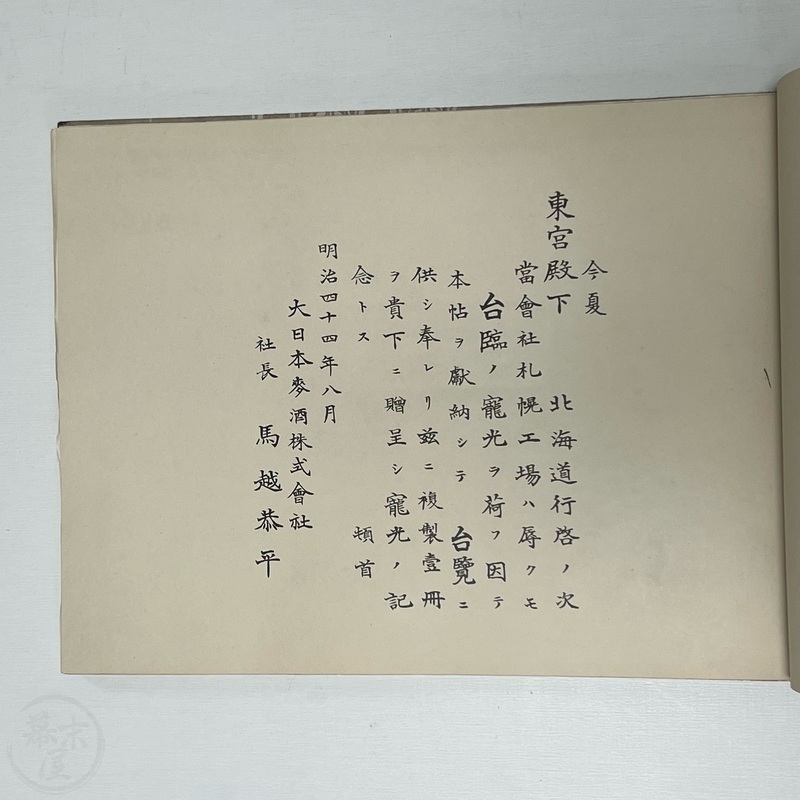 今夏
東宮殿下 北海道行啓ノ次
當會社札幌工場ハ辱クモ
台臨ノ寵光ヲ荷フ因テ
本帖ヲ獻納シテ 台覽ニ
供シ奉レリ玆ニ複製壹冊
ヲ貴下ニ贈呈シ寵光ノ記
念トス 頓首
明治四十四年八月
大日本麥酒株式會社
社長 馬越恭平
幕末屋